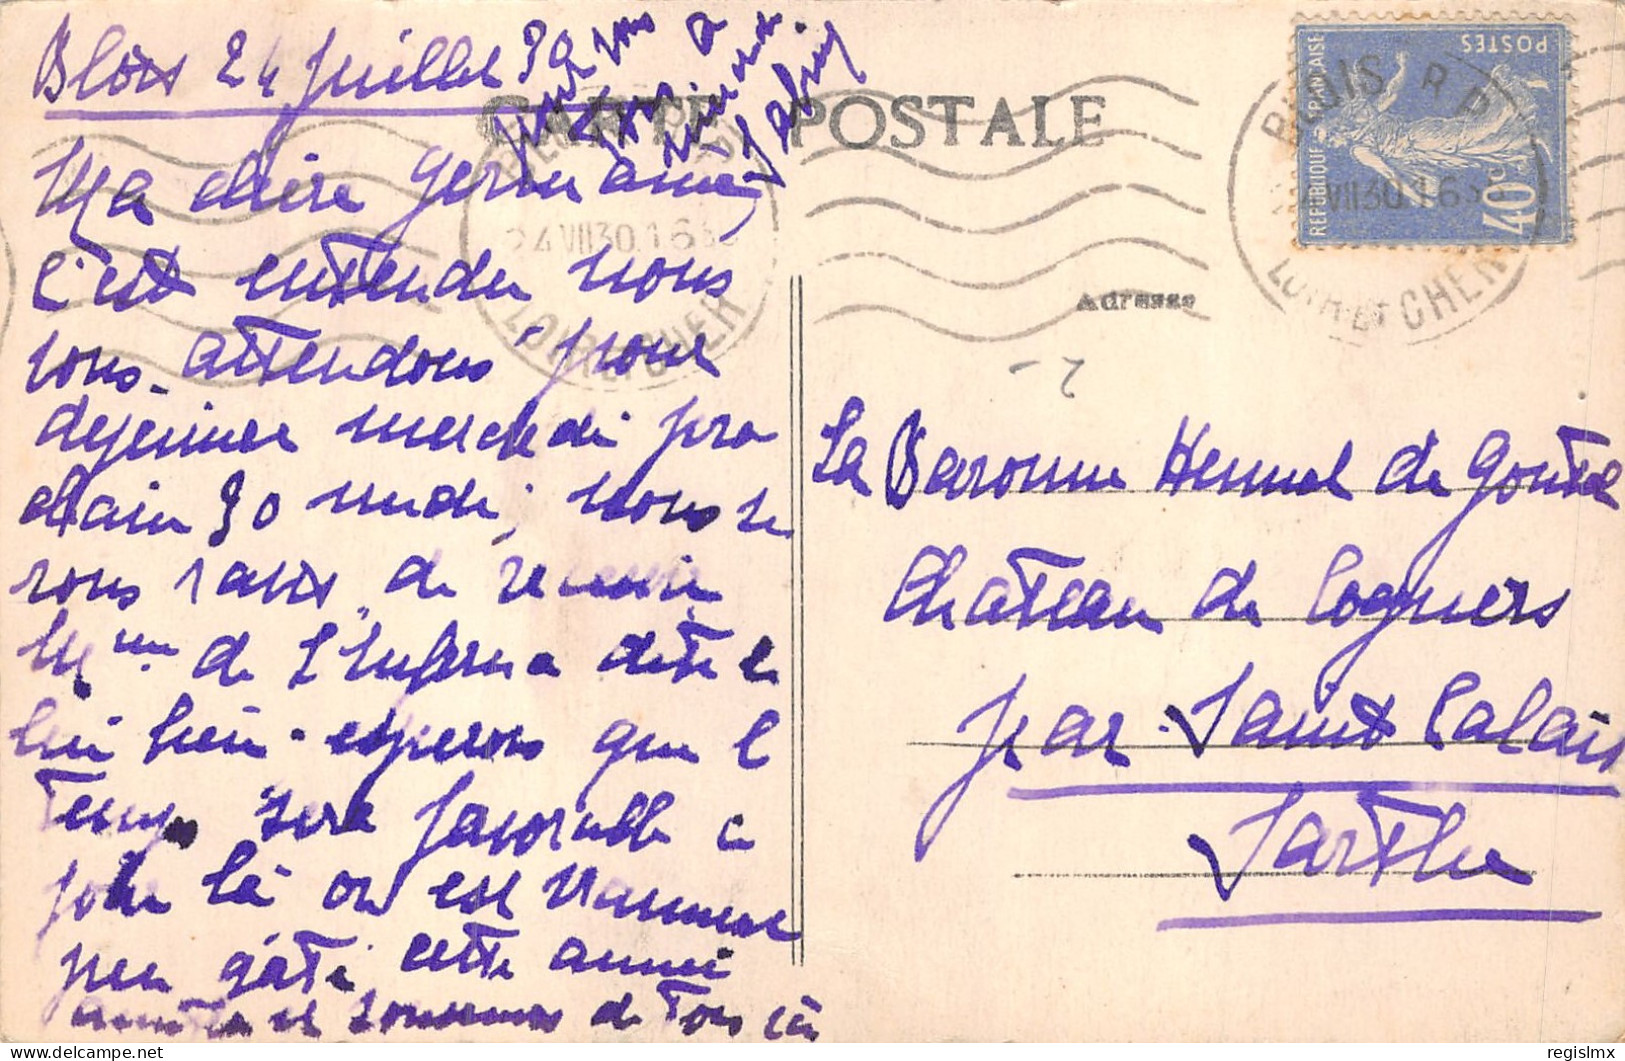 Blois 24 juillet 30
Ma chère Germaine,
c'est entendu nous
vous attendons pour
dejeuner mercredi pro
chain 30 midi, nous se
rons ravis de revoir
Mme de dites
lui bien. esperons que le
temps sera favorable ce
jour là on est vraiment
peu gâté cette année
amitiés et souvenirs de tous
CARTE POSTALE
Adresse
La Baronne Hennet de Goutel
Château de Cogners
par Saint Calais
Sarthe
REPUBLIQUE FRANÇAISE
POSTES
40c
BLOIS R.P.
24 VII 30 16
LOIR-ET-CHER
24 VII 30 16
LOIR-ET-CHER
regislmx